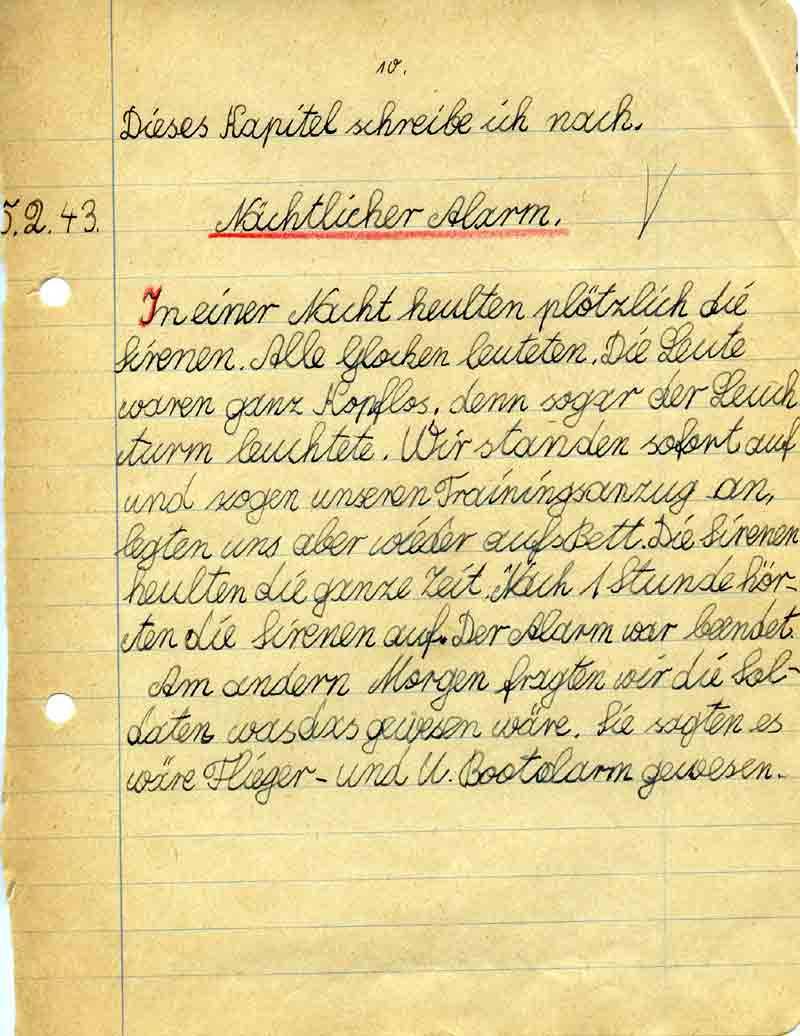 10.
Dieses Kapitel schreibe ich nach.
5.2.43. Nächtlicher Alarm.
In einer Nacht heulten plötzlich die
Sirenen. Alle Glocken leuteten. Die Leute
waren ganz Kopflos, denn sogar der Leuch
turm leuchtete. Wir standen sofort auf
und zogen unseren Trainingsanzug an,
legten uns aber wieder aufs Bett. Die Sirenen
heulten die ganze Zeit. Nach 1 Stunde hör-
ten die Sirenen auf. Der Alarm war beendet.
Am andern Morgen fragten wir die Sol-
daten was das gewesen wäre. Sie sagten es
wäre Flieger- und U. Bootalarm gewesen.